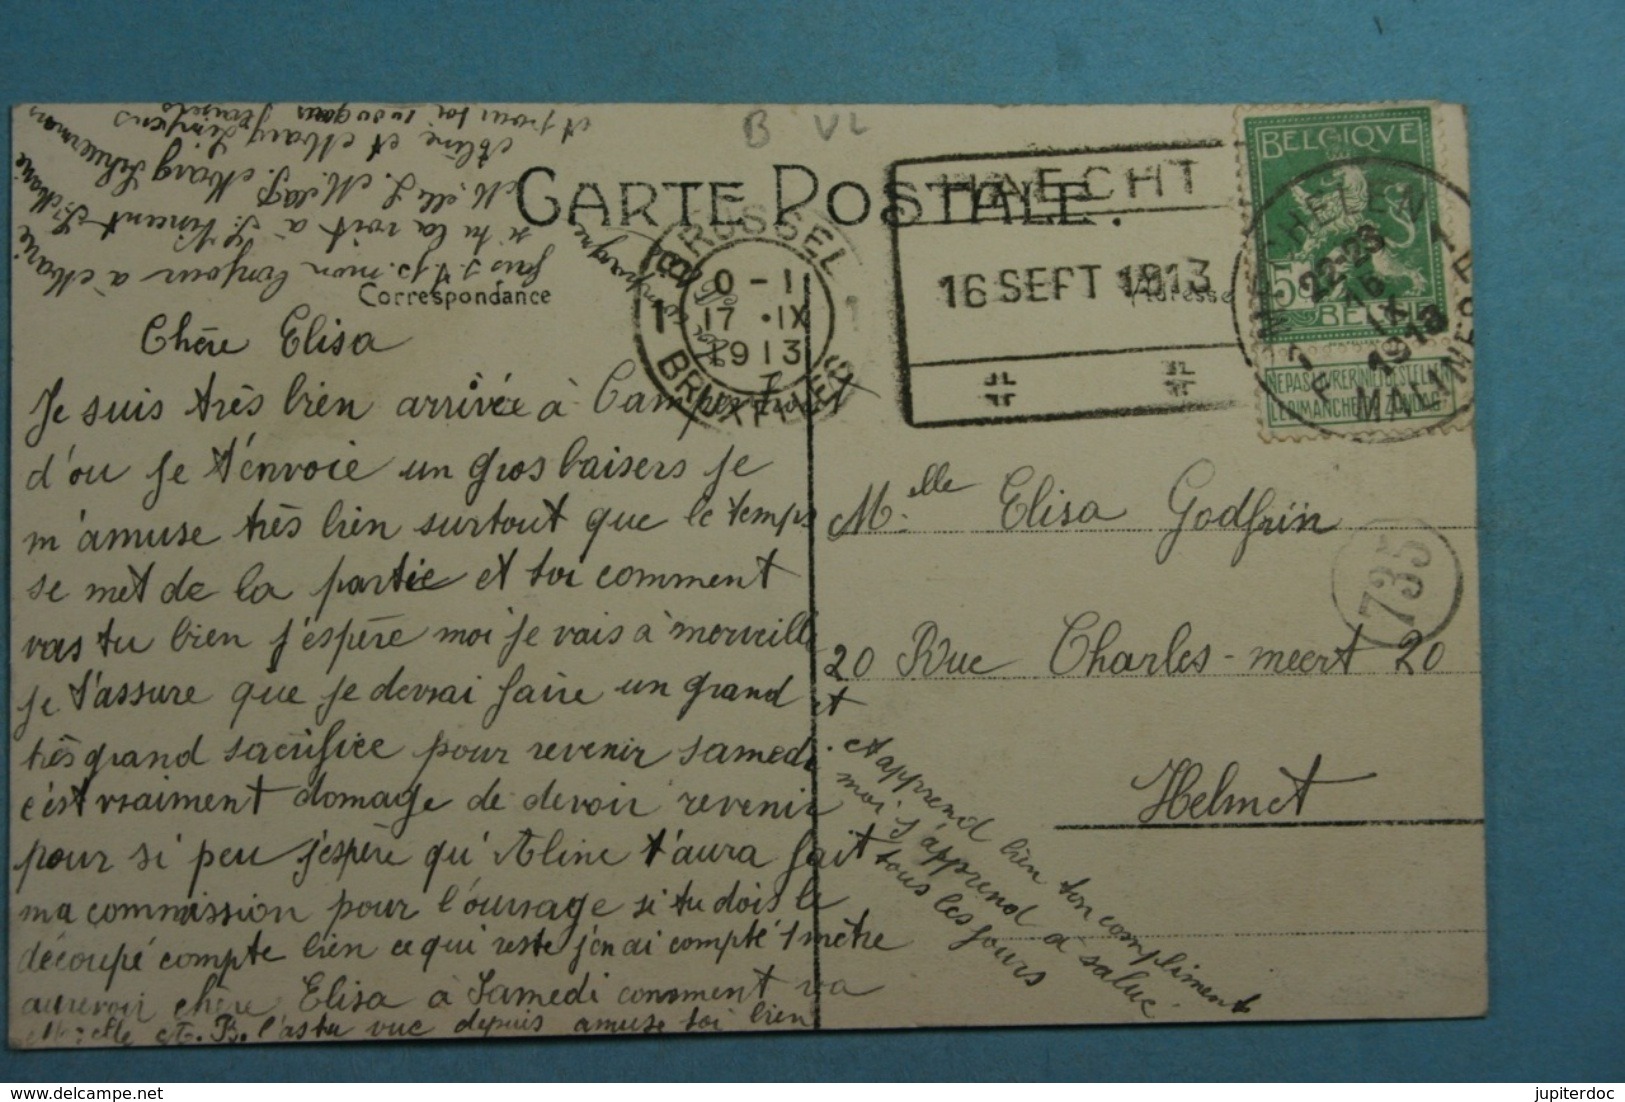 B VL
CARTE POSTALE.
Correspondance
Adresse
HAECHT
16 SEPT 1913
BRUSSEL
1 0-1 1
17 • IX
1913
BRUXELLES
MECHELEN
22-23
16 IX
1913
MALINES
BELGIQUE
5c
BELGIË
NE PAS LIVRER NIET BESTELLEN
LE DIMANCHE OP ZONDAG
735
Et pour toi 1000 gros baisers
Aline et Mary Simfens
M.elle J. M. Mary Schuermans
si tu la voit à St Vincent St Marie
fais s.t.p. mon bonjour à Marie
Chère Elisa
Je suis très bien arrivée à Campenhout
d'ou je t'envoie un gros baisers je
m'amuse très bien surtout que le temps
se met de la partie et toi comment
vas tu bien j'espère moi je vais à merveille
je t'assure que je devrai faire un grand et
très grand sacrifice pour revenir samedi.
c'est vraiment domage de devoir revenir
pour si peu j'espère qu'Aline t'aura fait
ma commission pour l'ouvrage si tu dois le
découpé compte bien ce qui reste j'en ai compté 1 mètre
aurevoir chère Elisa à Samedi comment va
M:elle A. B. l'as tu vue depuis amuse toi bien
et apprend bien ton compliment
moi j'apprend à saluer
tous les jours
M.elle Elisa Godfrin
20 Rue Charles-meert 20
Helmet